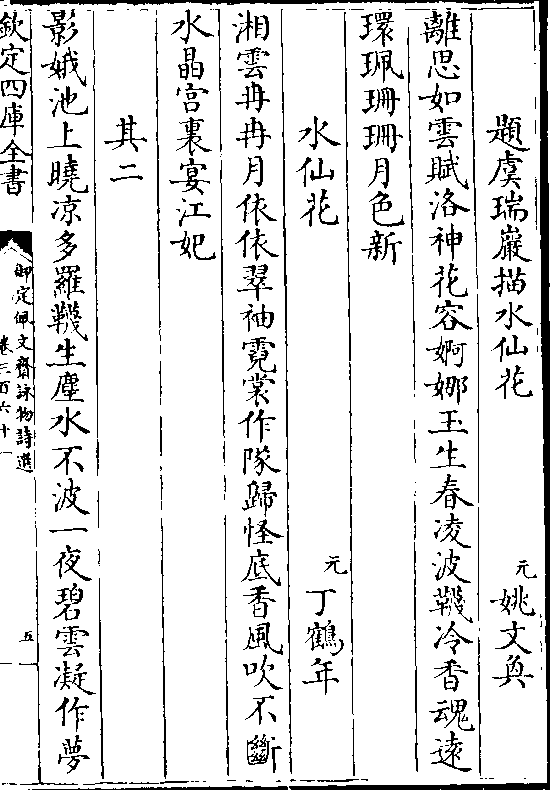 題虞瑞巖描水仙花 元 姚文奐
離思如雲賦洛神花容婀娜玉生春凌波韈冷香魂遠
環珮珊珊月色新
水仙花 元 丁鶴年
湘雲冉冉月依依翠袖霓裳作隊歸怪底香風吹不斷
水晶宮裏宴江妃
其二
影娥池上曉凉多羅韈生塵水不波一夜碧雲凝作夢
欽定四庫全書
御定佩文齋詠物詩選
卷三百六十一
五